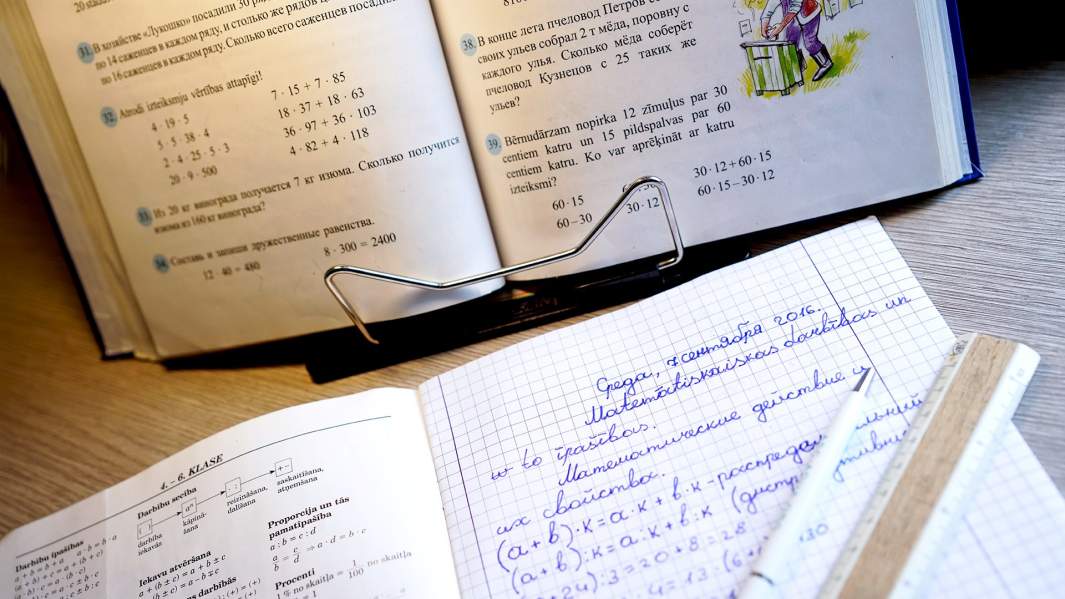 20 
31. В хозяйстве «Лукошко» посадили 30 
по 14 саженцев в каждом ряду, и столько же рядов
по 16 саженцев в каждом ряду. Сколько всего саженцев посадили
32. Atrodi izteiksmju vērtības attapīgi!
4 · 19 · 5
5 · 5 · 38 · 4
2 · 4 · 25 · 5 · 3
20 · 9 · 500
7 · 15 + 7 · 85
18 · 37 + 18 · 63
36 · 97 + 36 · 103
4 · 82 + 4 · 118
33. Из 20 кг винограда получается 7 кг изюма. Сколько получится
изюма из 160 кг винограда?
34. Составь и запиши дружественные равенства.
12 · 40 = 480
8 · 300 = 2400
38. В конце лета пчеловод Петров
своих ульев собрал 2 т мёда, поровну с
каждого улья. Сколько мёда соберёт
пчеловод Кузнецов с 25 таких же
ульев?
39. Bērnudārzam nopirka 12 zīmuļus par 30
centiem katru un 15 pildspalvas par 60
centiem katru. Ko var aprēķināt ar katru
izteiksmi?
60 · 15
60 – 30
30 · 12
30 · 12 + 60 · 15
60 · 15 – 30 · 12
4. – 6. KLASE
Darbību īpašības
a · b = b · a
a + b = b + a
Darbību secība
( )
aⁿ
· :
+ –
darbība
iekavās
kāpinā-
šana
reizināšana,
dalīšana
saskaitīšana,
atņemšana
Iekavu atvēršana
a + (b ± c) = a + b ± c
a – (b ± c) = a – b ∓ c
Proporcija un tās
pamatīpašība
a : b = c : d
a/b = c/d ⇒ a · d = b · c
Procenti
1 % no skaitļa = 1/100 no skaitļa
Среда, 7 сентября 2016.
Matemātiskaiskas darbības un
to īpašības.
Математические действие и
их свойства.
(a + b) · к = a · к + b · к - распредел
(a + b) : к = a : к + b : к
24) : 3 = 20 + 8 = 28